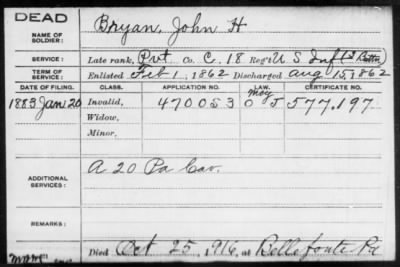 DEAD
NAME OF SOLDIER: Bryan, John H
SERVICE: Late rank, Pvt Co. C. 18 Reg't U S Inf (3 Battn)
TERM OF SERVICE: Enlisted Feb 1, 1862 Discharged Aug 15, 1862
DATE OF FILING. CLASS. APPLICATION NO. LAW. CERTIFICATE NO.
1883 Jan 20 Invalid, 470053 May 577.197
Widow,
Minor,
ADDITIONAL SERVICES: A 20 Pa Cav.
REMARKS:
Died Oct 25, 1916, at Bellefonte Pa